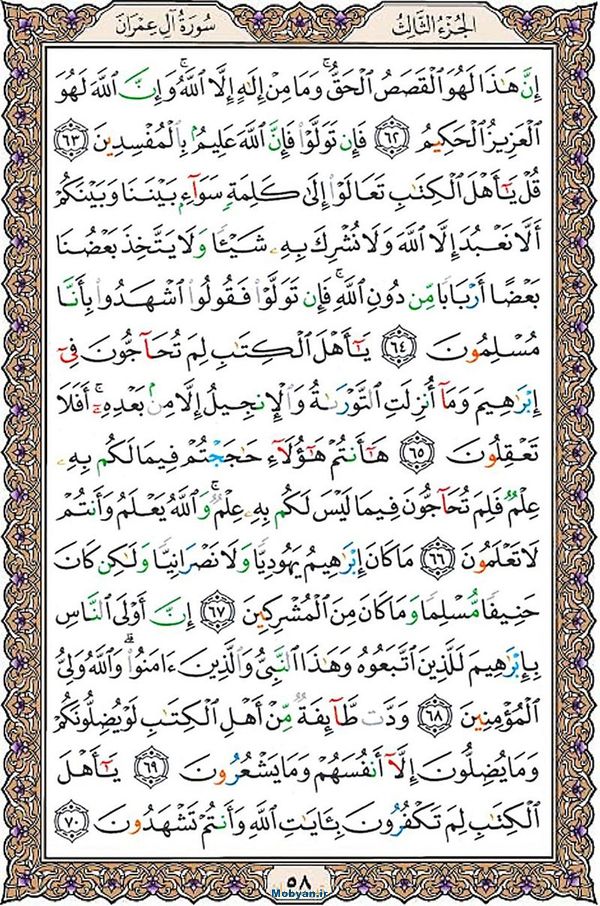 الجُزءُ الثَّالِثُ سُورَةُ آلِ عِمْرَانَ
إِنَّ هَٰذَا لَهُوَ ٱلْقَصَصُ ٱلْحَقُّ ۚ وَمَا مِنْ إِلَٰهٍ إِلَّا ٱللَّهُ ۚ وَإِنَّ ٱللَّهَ لَهُوَ
ٱلْعَزِيزُ ٱلْحَكِيمُ ٦٢ فَإِن تَوَلَّوْا۟ فَإِنَّ ٱللَّهَ عَلِيمٌۢ بِٱلْمُفْسِدِينَ ٦٣
قُلْ يَٰٓأَهْلَ ٱلْكِتَٰبِ تَعَالَوْا۟ إِلَىٰ كَلِمَةٍ سَوَآءٍۭ بَيْنَنَا وَبَيْنَكُمْ
أَلَّا نَعْبُدَ إِلَّا ٱللَّهَ وَلَا نُشْرِكَ بِهِۦ شَيْـًٔا وَلَا يَتَّخِذَ بَعْضُنَا
بَعْضًا أَرْبَابًا مِّن دُونِ ٱللَّهِ ۚ فَإِن تَوَلَّوْا۟ فَقُولُوا۟ ٱشْهَدُوا۟ بِأَنَّا
مُسْلِمُونَ ٦٤ يَٰٓأَهْلَ ٱلْكِتَٰبِ لِمَ تُحَآجُّونَ فِىٓ
إِبْرَٰهِيمَ وَمَآ أُنزِلَتِ ٱلتَّوْرَىٰةُ وَٱلْإِنجِيلُ إِلَّا مِنۢ بَعْدِهِۦٓ ۚ أَفَلَا
تَعْقِلُونَ ٦٥ هَٰٓأَنتُمْ هَٰٓؤُلَآءِ حَٰجَجْتُمْ فِيمَا لَكُم بِهِۦ
عِلْمٌ فَلِمَ تُحَآجُّونَ فِيمَا لَيْسَ لَكُم بِهِۦ عِلْمٌ ۚ وَٱللَّهُ يَعْلَمُ وَأَنتُمْ
لَا تَعْلَمُونَ ٦٦ مَا كَانَ إِبْرَٰهِيمُ يَهُودِيًّا وَلَا نَصْرَانِيًّا وَلَٰكِن كَانَ
حَنِيفًا مُّسْلِمًا وَمَا كَانَ مِنَ ٱلْمُشْرِكِينَ ٦٧ إِنَّ أَوْلَى ٱلنَّاسِ
بِإِبْرَٰهِيمَ لَلَّذِينَ ٱتَّبَعُوهُ وَهَٰذَا ٱلنَّبِىُّ وَٱلَّذِينَ ءَامَنُوا۟ ۗ وَٱللَّهُ وَلِىُّ
ٱلْمُؤْمِنِينَ ٦٨ وَدَّت طَّآئِفَةٌ مِّنْ أَهْلِ ٱلْكِتَٰبِ لَوْ يُضِلُّونَكُمْ
وَمَا يُضِلُّونَ إِلَّآ أَنفُسَهُمْ وَمَا يَشْعُرُونَ ٦٩ يَٰٓأَهْلَ
ٱلْكِتَٰبِ لِمَ تَكْفُرُونَ بِـَٔايَٰتِ ٱللَّهِ وَأَنتُمْ تَشْهَدُونَ ٧٠
٥٨
Mobyan.ir